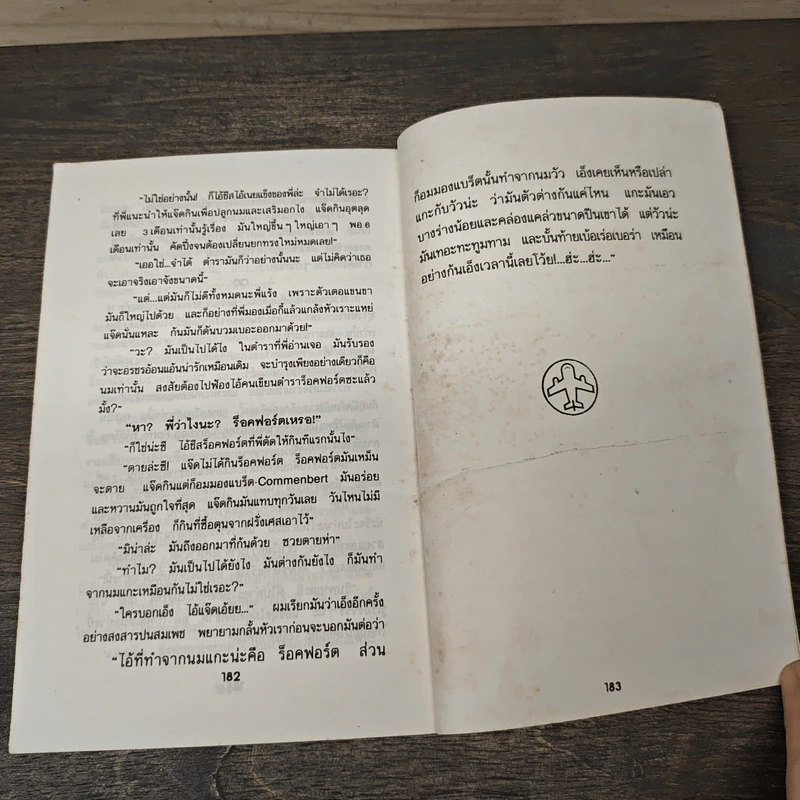 "ไม่ใช่อย่างนั้น! ก็ไอ้ชีสไอ้เนยแข็งของพี่ล่ะ จำไม่ได้เรอะ?
ที่พี่แนะนำให้แจ๊ดกินเพื่อปลูกนมและเสริมอกไง แจ๊ดกินอุตลุด
เลย 3 เดือนเท่านั้นรู้เรื่อง มันใหญ่ขึ้นๆ ใหญ่เอาๆ พอ 6
เดือนเท่านั้น คัดปึ๋งจนต้องเปลี่ยนยกทรงใหม่หมดเลย!"
"เออใช่...จำได้ ตำรามันก็ว่าอย่างนั้นนะ แต่ไม่คิดว่าเธอ
จะเอาจริงเอาจังขนาดนี้"
"แต่...แต่มันก็ไม่ดีทั้งหมดนะพี่แร้ง เพราะตัวเตอแขนขา
มันก็ใหญ่ไปด้วย และก็อย่างที่พี่มองเมื่อกี้แล้วแกล้งหัวเราะแหย่
แจ๊ดนั่นแหละ ก้นมันก็ดันบวมเบอะออกมาด้วย!"
"วะ? มันเป็นไปได้ไง ในตำราที่พี่อ่านเจอ มันรับรอง
ว่าจะอรชรอ้อนแอ้นน่ารักเหมือนเดิม จะบำรุงเพียงอย่างเดียวก็คือ
นมเท่านั้น สงสัยต้องไปฟ้องไอ้คนเขียนตำราร็อคฟอร์ตซะแล้ว
มั้ง?"
"หา? พี่ว่าไงนะ? ร็อคฟอร์ตเหรอ!"
"ก็ใช่น่ะซี ไอ้ชีสร็อคฟอร์ตที่พี่ตัดให้กินทีแรกนั้นไง"
"ตายล่ะซี! แจ๊ดไม่ได้กินร็อคฟอร์ต ร็อคฟอร์ตมันเหม็น
จะตาย แจ๊ดกินแต่ก็อมมองแบร็ต-Commenbert มันอร่อย
และหวานมันถูกใจที่สุด แจ๊ดกินมันแทบทุกวันเลย วันไหนไม่มี
เหลือจากเครื่อง ก็กินที่ซื้อตุนจากฝรั่งเศสเอาไว้"
"มิน่าล่ะ มันถึงออกมาที่ก้นด้วย ซวยตายห่า"
"ทำไม? มันเป็นไปได้ยังไง มันต่างกันยังไง ก็มันทำ
จากนมแกะเหมือนกันไม่ใช่เรอะ?"
"ใครบอกเอ็ง ไอ้แจ๊ดเอ้ยย..." ผมเรียกมันว่าเอ็งอีกครั้ง
อย่างสงสารปนสมเพช พยายามกลั้นหัวเราก่อนจะบอกมันต่อว่า
"ไอ้ที่ทำจากนมแกะน่ะคือ ร็อคฟอร์ต ส่วน
182
ก็อมมองแบร็ตนั้นทำจากนมวัว เอ็งเคยเห็นหรือเปล่า
แกะกับวัวน่ะ ว่ามันตัวต่างกันแค่ไหน แกะมันเอว
บางร่างน้อยและคล่องแคล่วขนาดปีนเขาได้ แต่วัวน่ะ
มันเทอะทะทูมทาม และบั้นท้ายเบ้อเร่อเบอร่า เหมือน
อย่างก้นเอ็งเวลานี้เลยโว้ย!...ฮ่ะ...ฮ่ะ..."
183